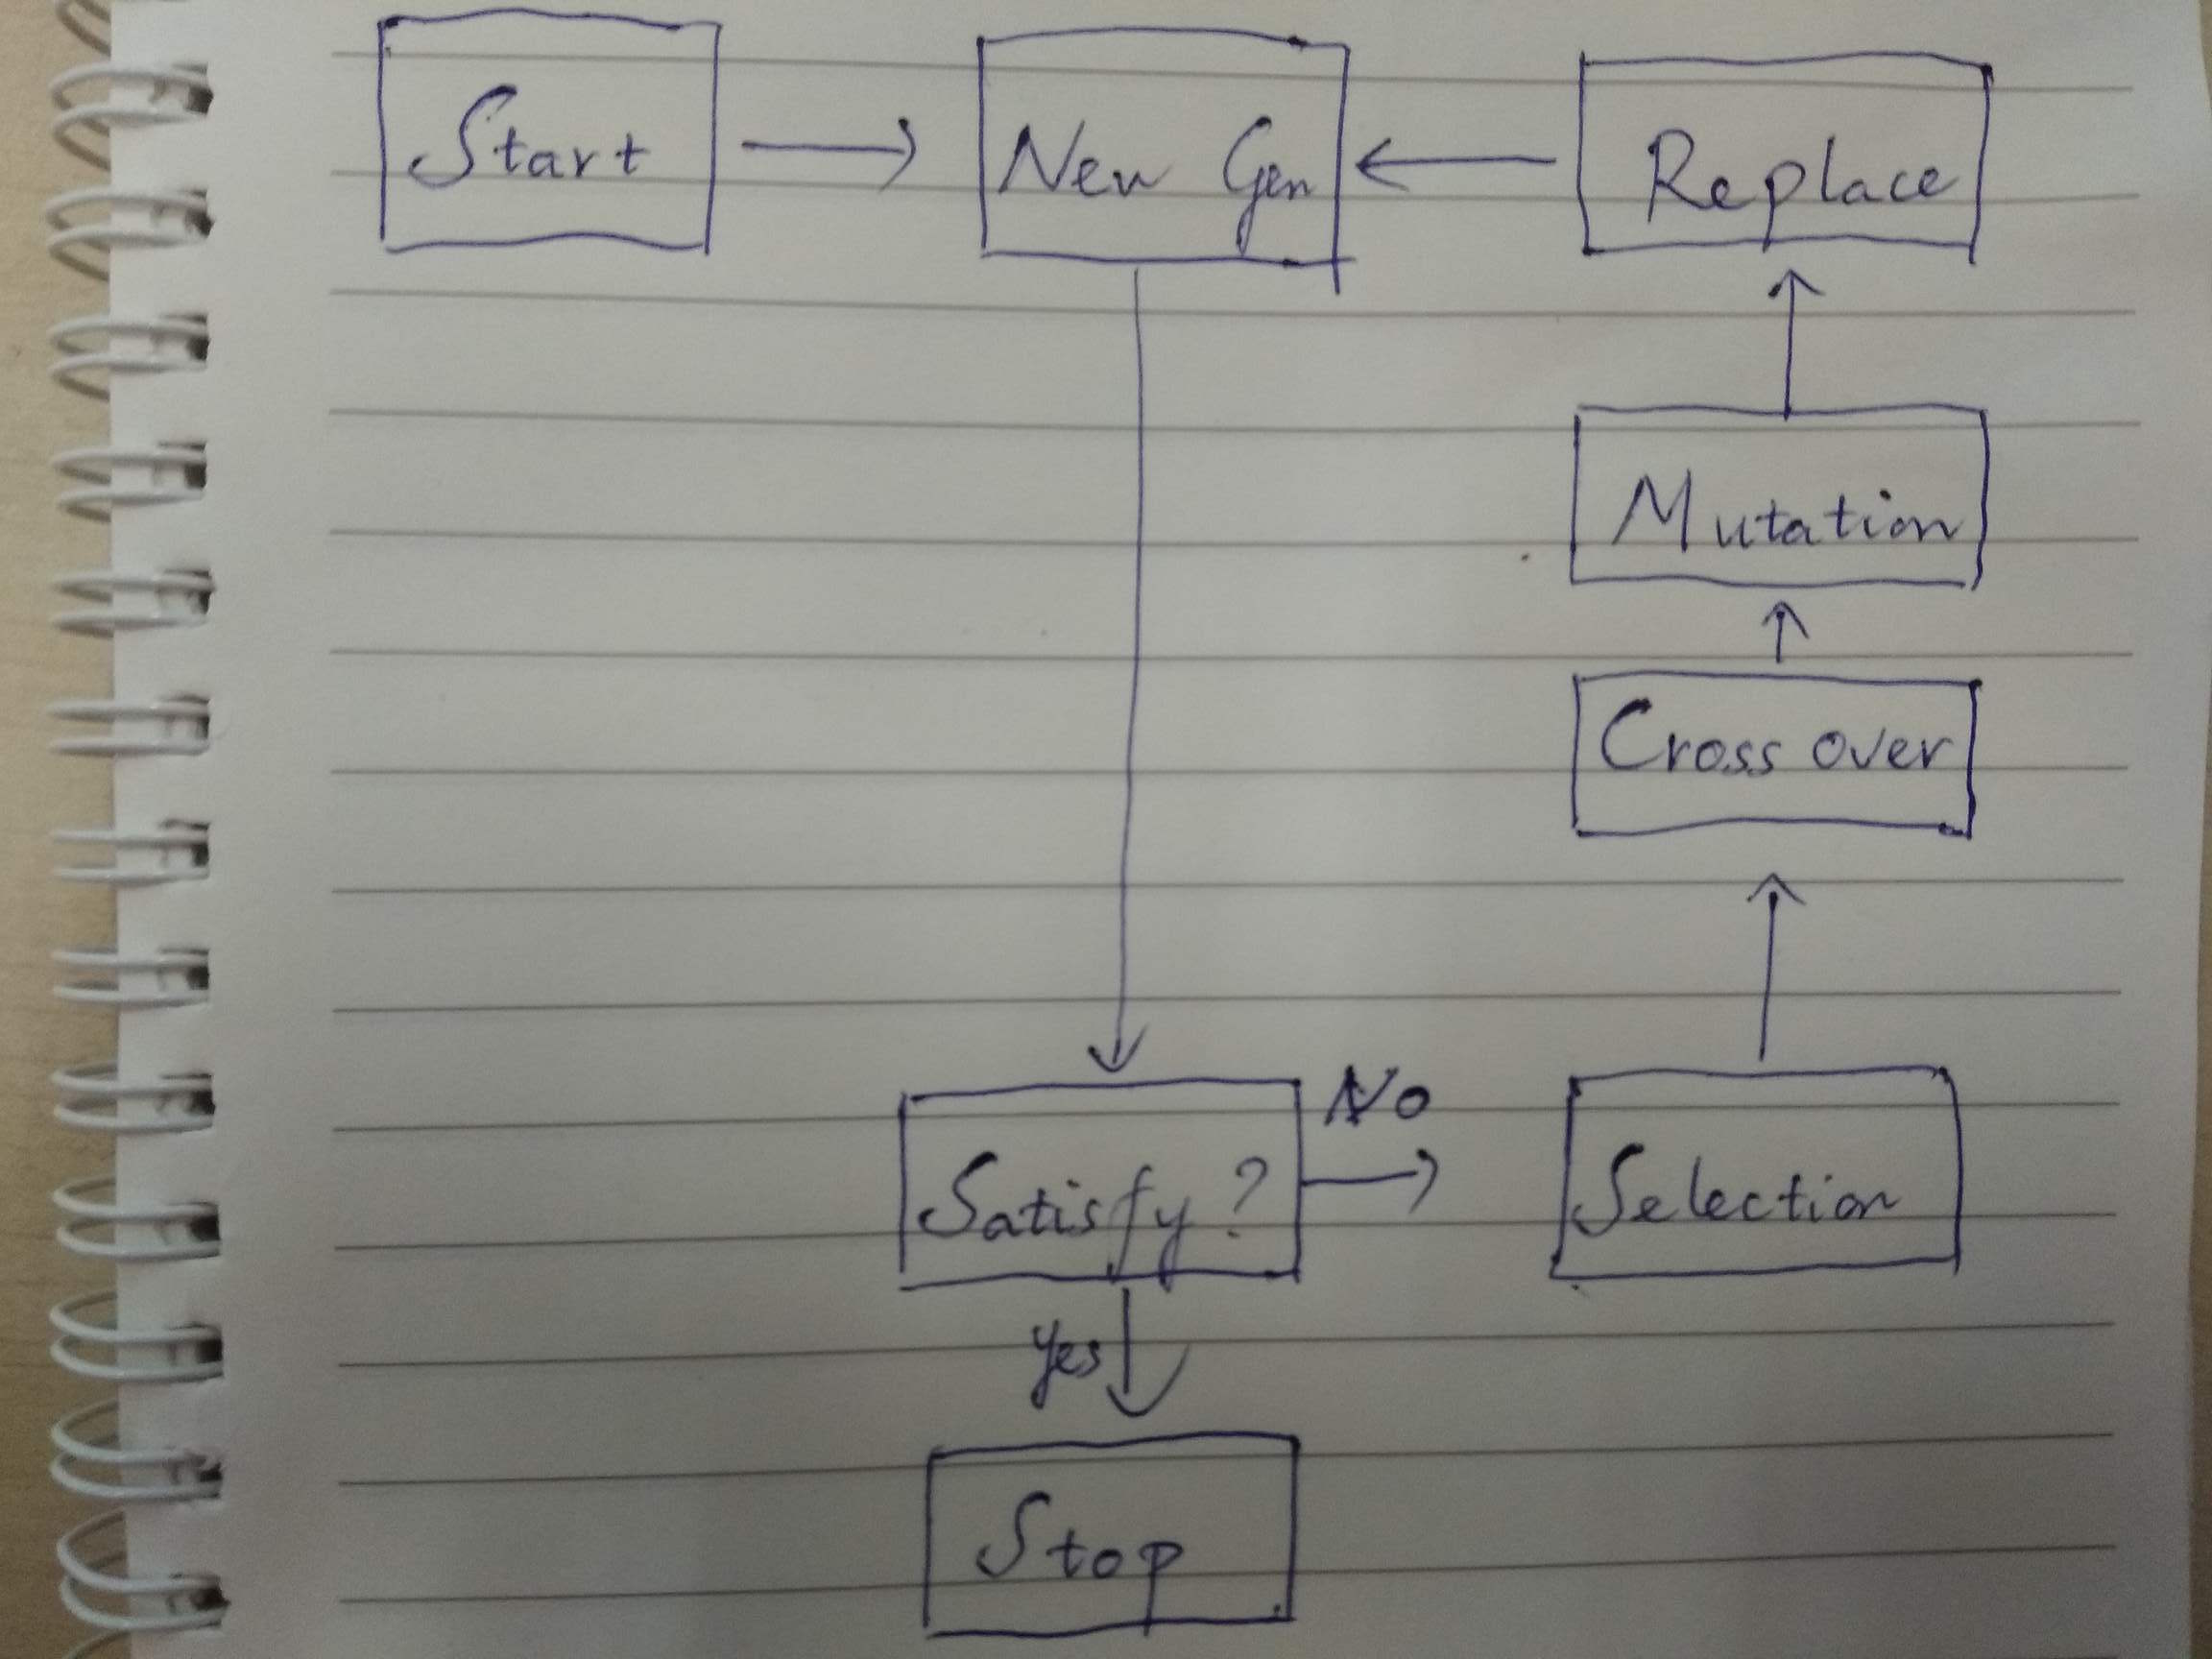 Start
New Gen
Replace
Mutation
Cross over
No
Satisfy ?
Selection
yes
Stop